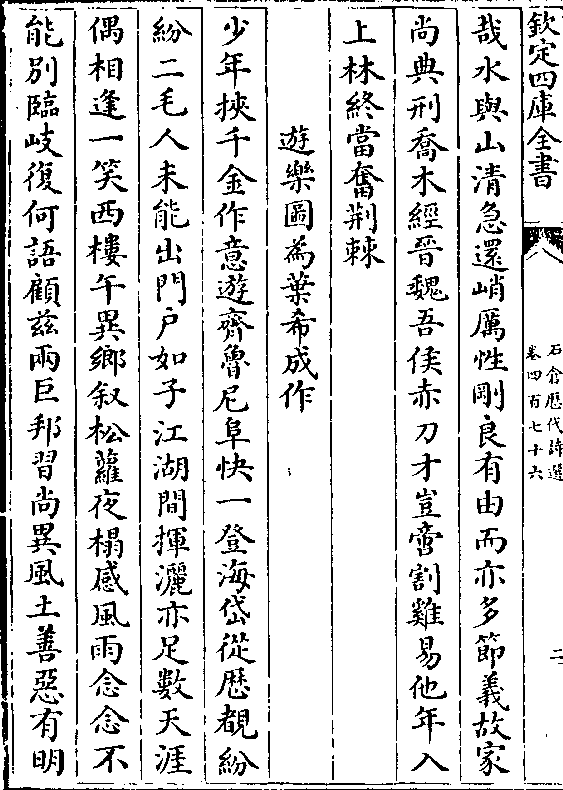 欽定四庫全書
石倉歷代詩選
卷四百七十六
二
哉水與山清急還峭厲性剛良有由而亦多節義故家
尚典刑喬木經晉魏吾侯赤刀才豈啻割雞易他年入
上林終當奮荆棘
遊樂圖為葉希成作
少年挾千金作意遊齊魯尼阜快一登海岱從歴覩紛
紛二毛人未能出門户如子江湖間揮灑亦足數天涯
偶相逢一笑西樓午異鄉叙松蘿夜榻感風雨念念不
能别臨岐復何語顧兹兩巨邦習尚異風土善惡有明